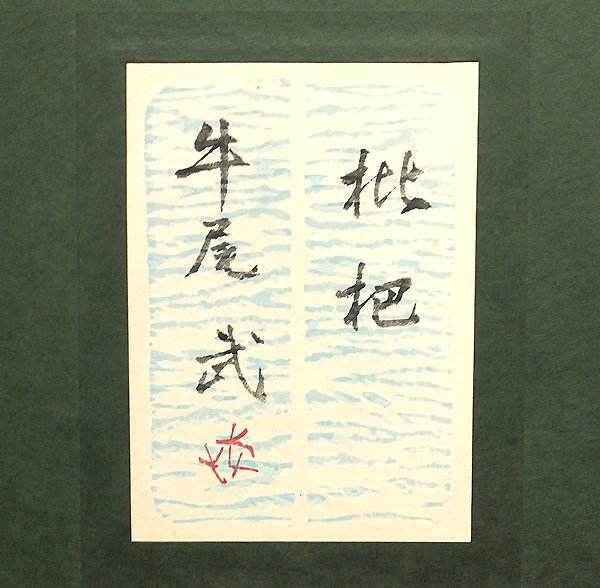 枇杷
牛尾武